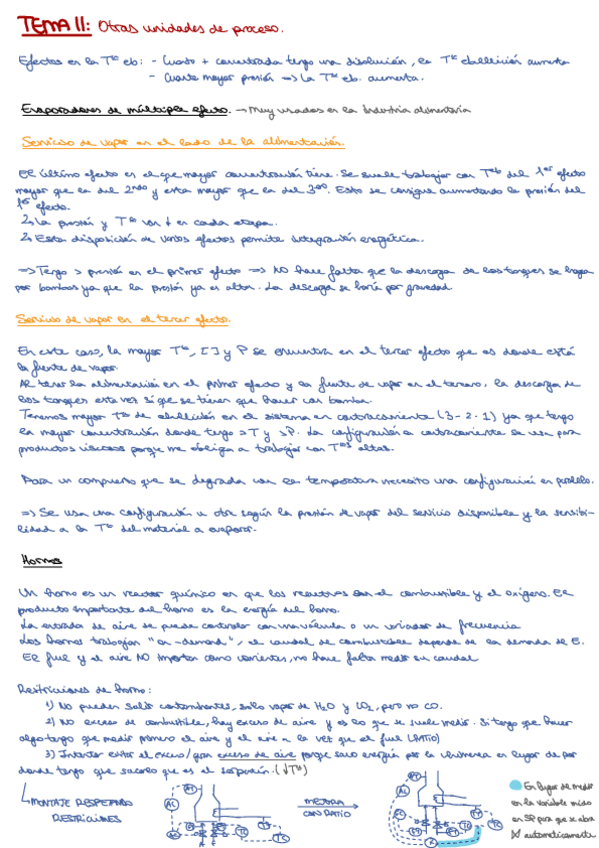 TEMA 11: Otras unidades de proceso.
Efectos en la Tª eb: - Cuanto + concentrada tengo una disolución, la Tª ebullición aumenta
- Cuanto mayor presión => La Tª eb. aumenta.
Evaporadores de múltiple efecto. → Muy usados en la Industria alimentaria
Servicio de vapor en el lado de la alimentación.
El último efecto es el que mayor concentración tiene. Se suele trabajar con Tª eb del 1er efecto
mayor que la del 2ndo y esta mayor que la del 3ero. Esto se consigue aumentando la presión del
1er efecto.
La presión y Tª van ↓ en cada etapa.
Esta disposición de varios efectos permite integración energética.
=> Tengo > presión en el primer efecto => No hace falta que la descarga de los tanques se haga
por bombas ya que la presión ya es alta. La descarga se haría por gravedad.
Servicio de vapor en el tercer efecto.
En este caso, la mayor Tª, [ ] y P se encuentra en el tercer efecto que es donde está
la fuente de vapor.
Al tener la alimentación en el primer efecto y la fuente de vapor en el tercero, la descarga de
los tanques esta vez si que se tienen que hacer con bomba.
Tenemos mayor Tª de ebullición en el sistema en contracorriente (3-2-1) ya que tengo
la mayor concentración donde tengo >T y >P. La configuración a contracorriente se usa para
productos viscosos porque me obliga a trabajar con Tªs altas.
Para un compuesto que se degrada con la temperatura necesito una configuración en paralelo.
=> Se usa una configuración u otra según la presión de vapor del servicio disponible y la sensibi-
lidad a la Tª del material a evaporar.
Hornos
Un horno es un reactor químico en que los reactivos son el combustible y el oxígeno. El
producto importante del horno es la energía del horno.
La entrada de aire se puede controlar con una válvula o un variador de frecuencia
Los hornos trabajan "on-demand", el caudal de combustible depende de la demanda de E.
El fuel y el aire NO importan como corrientes, no hace falta medir su caudal
Restricciones de horno:
1) No pueden salir contaminantes, solo vapor de H2O y CO2, pero no CO.
2) No exceso de combustible, hay exceso de aire y es lo que se suele medir. Si tengo que hacer
algo tengo que medir primero el aire y el aire a la vez que el fuel (RATIO)
3) Intentar evitar el exceso/gran exceso de aire porque saco energía por la chimenea en lugar de por
donde tengo que sacarla que es el serpentín. (↓Tª)
MONTAJE RESPETANDO
RESTRICCIONES
AT
AC
TT
TC
MEJORA
CON RATIO
En lugar de medir
en la variable mido
en SP para que se abra
automáticamente